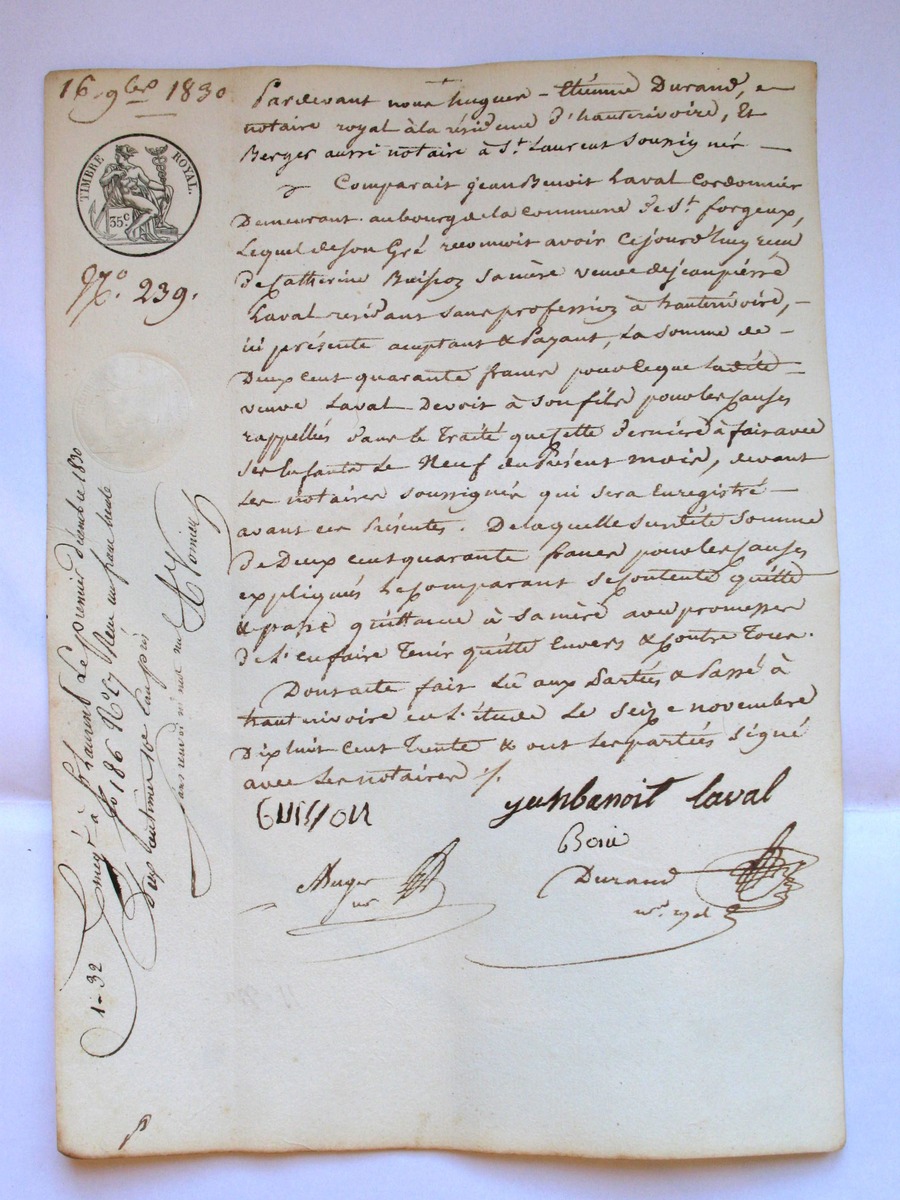 16 9bre 1830
TIMBRE ROYAL.
35c
No. 239.
Pardevant nous hugues - Etienne Durand,
notaire royal à la résidence d'hauterivoire, Et
Berger aussi notaire à St. Laurent Soussignés
Comparait jean Benoit Laval Cordonnier
Demeurant au bourg de la commune de St. forgeux,
Lequel de son Gré reconnoit avoir cejourd'huy reçu
de Catherine Buisson sa mère veuve de jean pierre
Laval residante sans profession à hauterivoire,
ici présente acceptante & Payant, La somme de
Deux cent quarante francs pour ce que ladite
veuve Laval Devoit à son fils pour les causes
rappellés dans le Traité que cette dernière à fait avec
ses Enfants Le Neuf du Présent mois, devant
Les notaires soussignés qui sera Enregistré
avant ces Présentes. De laquelle susdite somme
de Deux cent quarante francs pour les causes
expliqués Le Comparant se contente quitte
& passe quittance à sa mère avec promesse
de L'en faire Tenir quitte Envers & Contre Tous.
Dont acte fait Lû aux Parties & Passé à
hauterivoire en L'étude Le Seize novembre
Dix huit cent Trente & ont les parties signé
avec Les notaires ./.
Buisson
jeanbenoit laval
Durand
nre. ryal
à St Laurent Le premier décembre 1830
fo 186 Ro C7 Reçu un franc trente
Deux Centimes
1-32